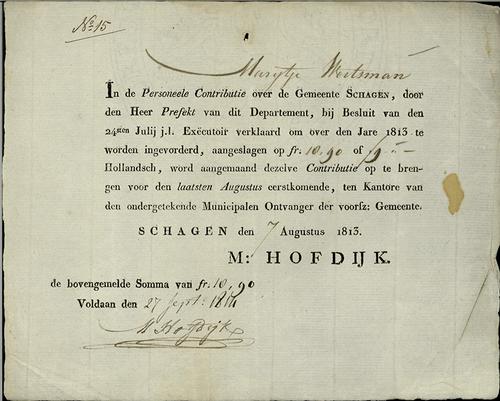 No 15
Marijtje Weetsman
In de Personeele Contributie over de Gemeente SCHAGEN, door
den Heer Prefekt van dit Departement, bij Besluit van den
24sten Julij j.l. Exëcutoir verklaard om over den Jare 1813 te
worden ingevorderd, aangeslagen op fr. 10.90 of
Hollandsch, word aangemaand dezelve Contributie op te bren-
gen voor den laatsten Augustus eerstkomende, ten Kantore van
den ondergetekende Municipalen Ontvanger der voorsz: Gemeente.
SCHAGEN den 7 Augustus 1813.
M: HOFDIJK.
de bovengemelde Somma van fr. 10,90
Voldaan den 27 Sept:
M Hofdijk